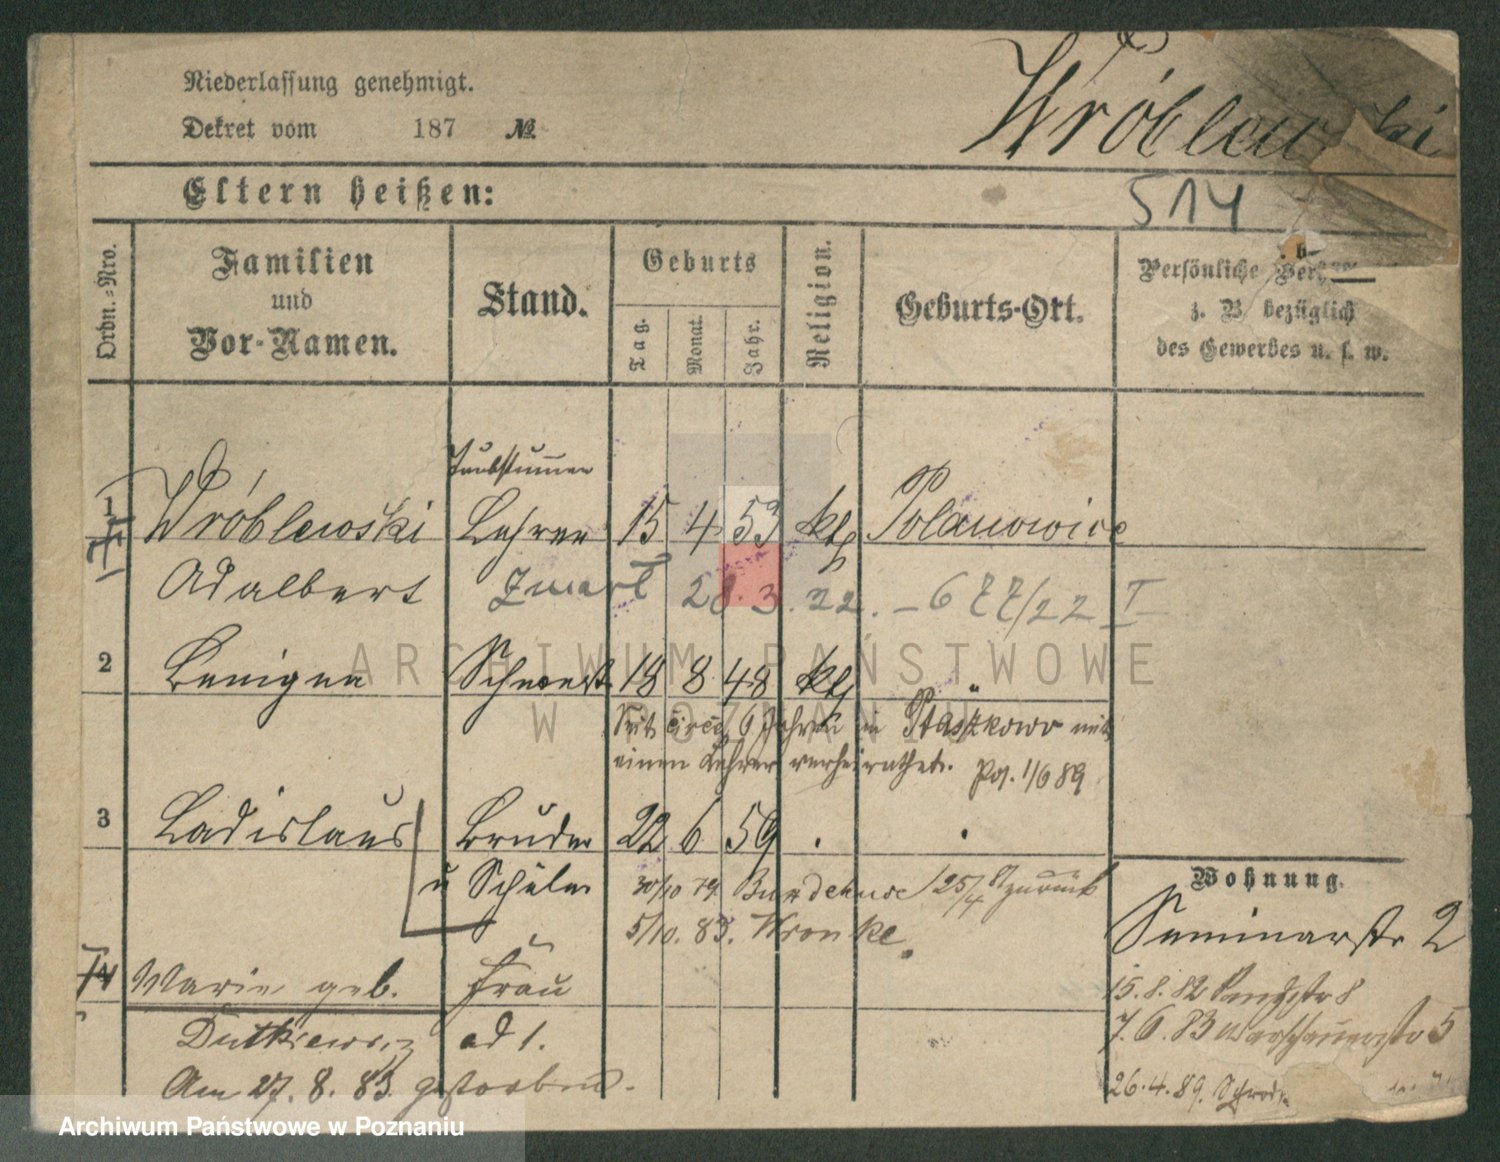 Niederlassung genehmigt.
Dekret vom 187 №
Wróblewski
Eltern heißen:
514
Ordn.-Nro.
Familien
und
Vor-Namen.
Stand.
Geburts
Tag.
Monat.
Jahr.
Religion.
Geburts-Ort.
Persönliche
z. B. bezüglich
des Gewerbes u. s. w.
Taubstummen
1 Wróblewski Lehrer 15 4 53 kth Polanowice
Adalbert 28.3.22. – 677/22 I
2 Benigna Schwest. 18 8 48 kth "
Seit circa 6 Jahren in Ptaszkowo mit
einem Lehrer verheirathet. 1/6 89
3 Ladislaus Bruder 22 6 59 . .
u Schüler 30/10 79 25/4 81 zurück
5/10. 83. Wronke.
4 Marie geb. Frau
Dutkiewicz ad 1.
Am 27. 8. 83. gestorben.
Wohnung.
Seminarstr 2
15. 8. 82 8
7. 6. 83 Warschauerstr 5
26. 4. 89.
ARCHIWUM PAŃSTWOWE
W POZNANIU
Archiwum Państwowe w Poznaniu